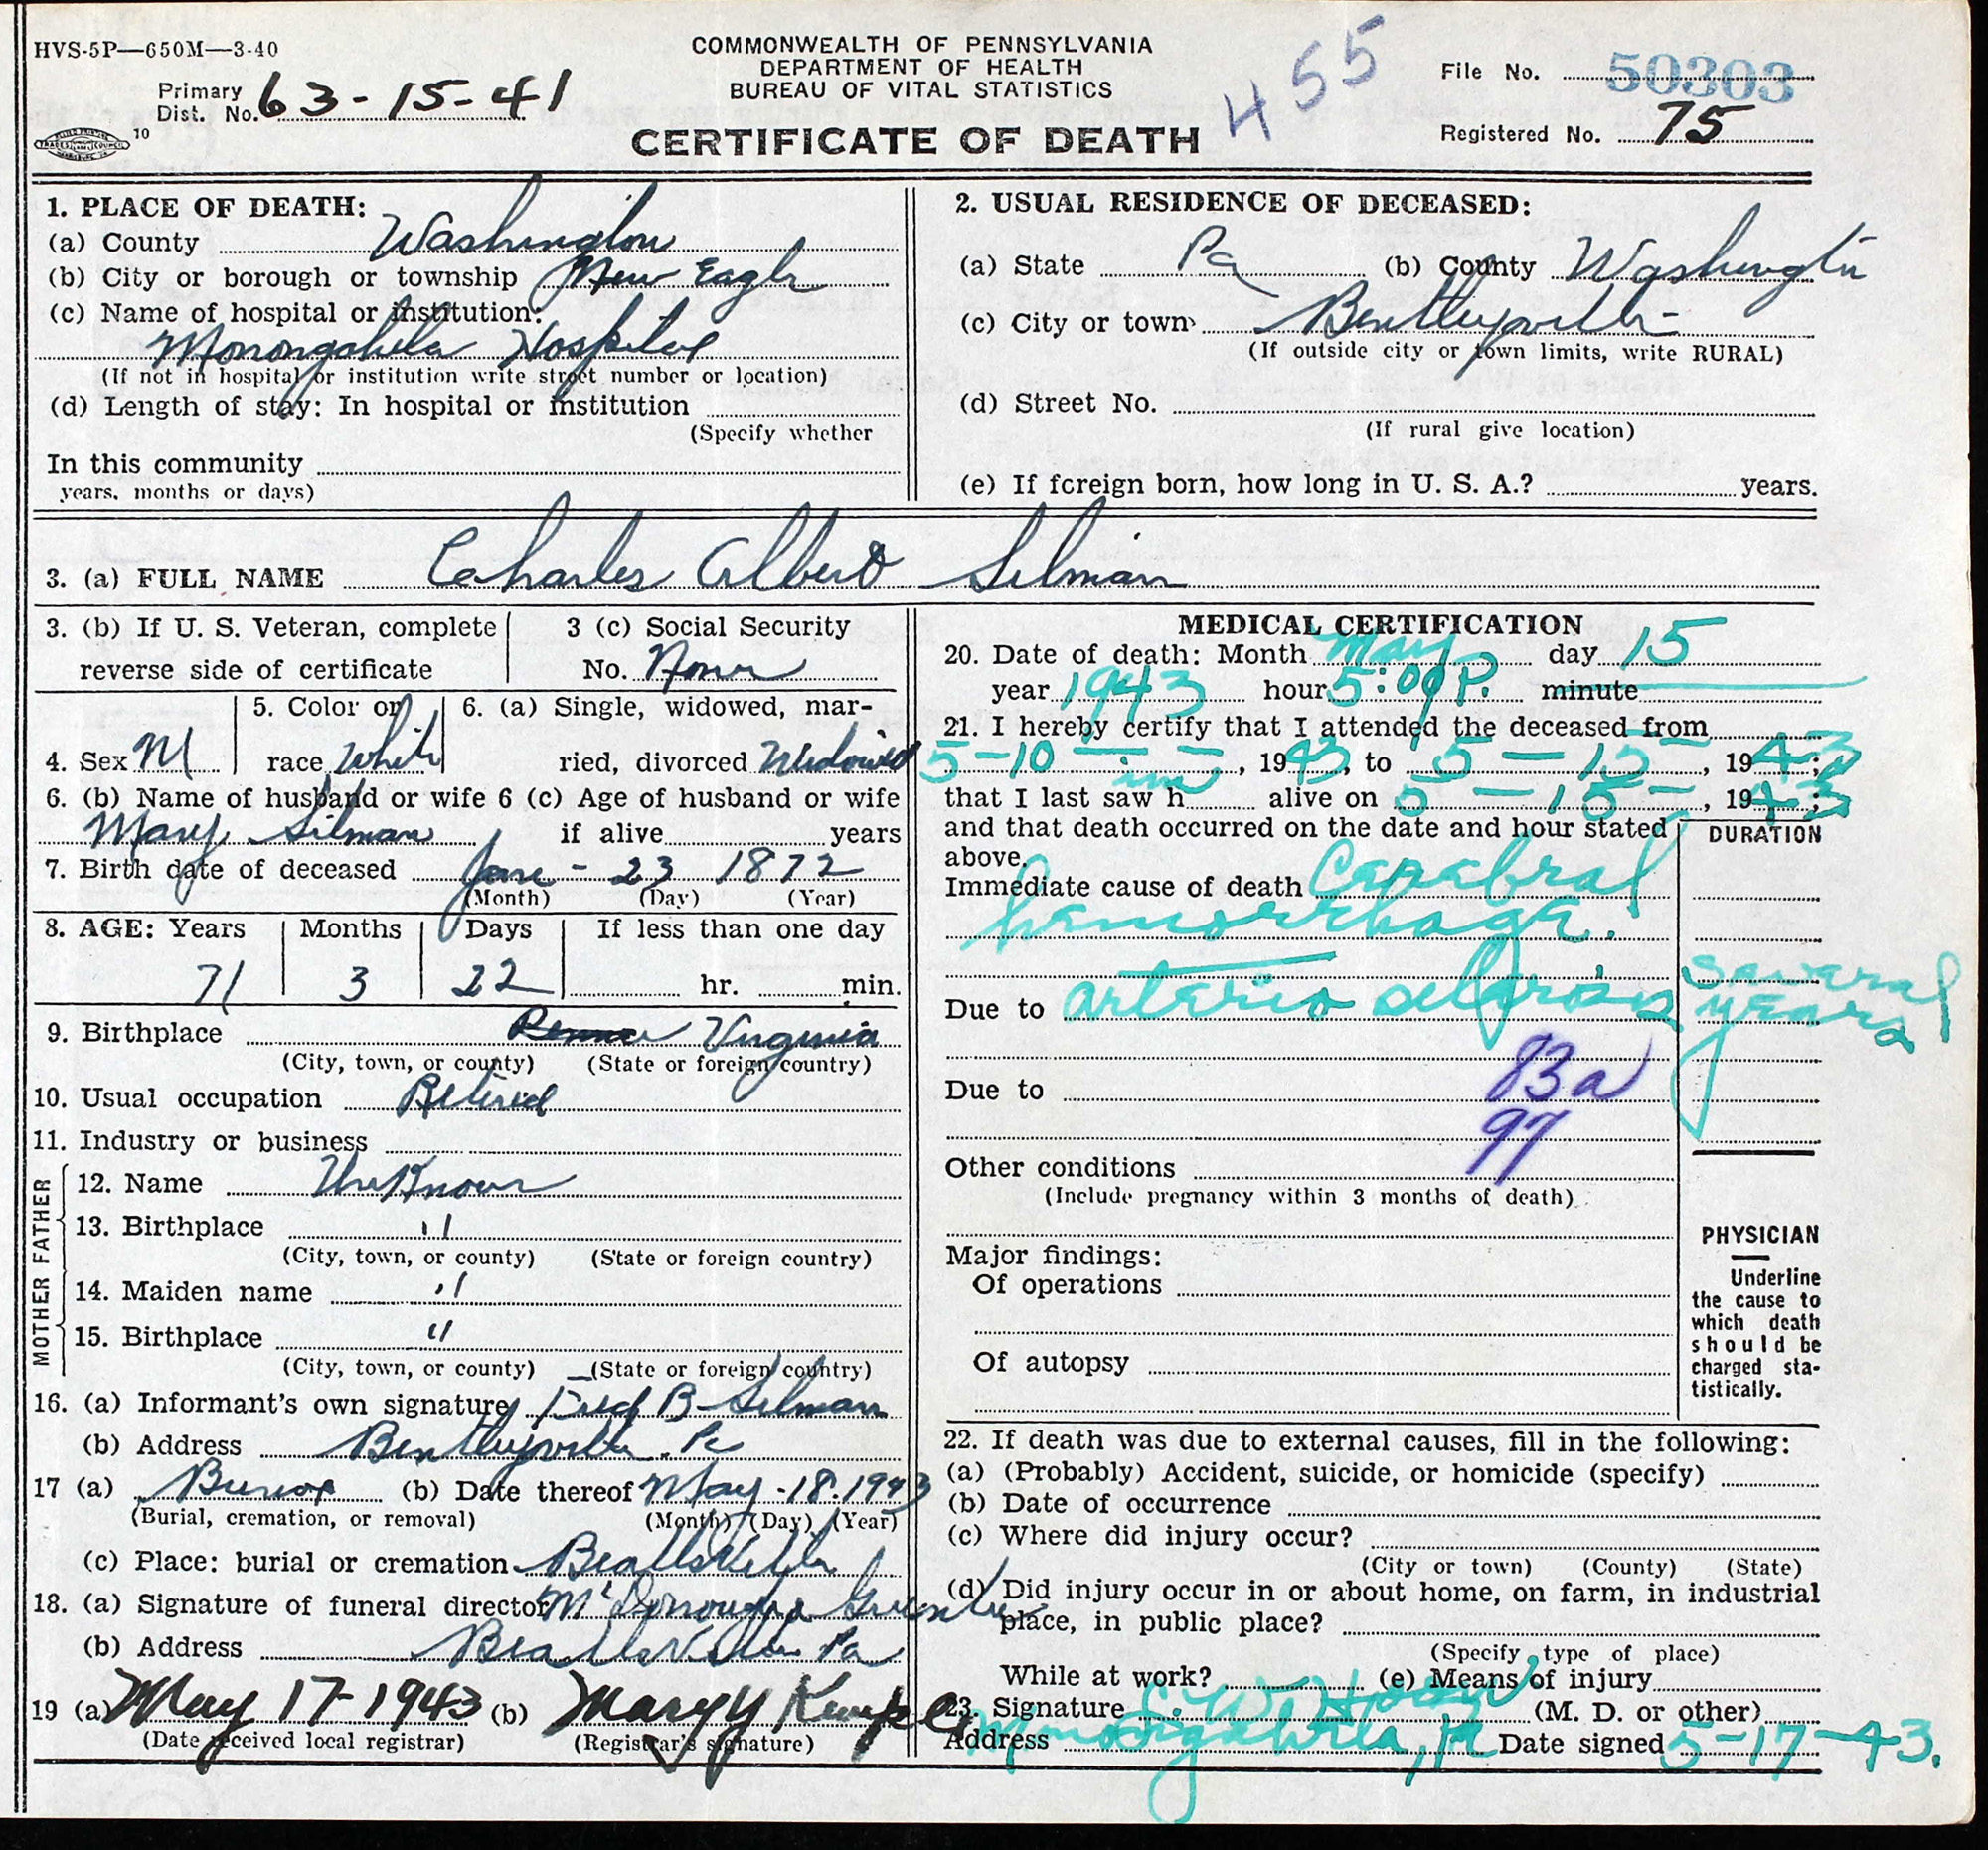 HVS-5P—650M—3-40
COMMONWEALTH OF PENNSYLVANIA
DEPARTMENT OF HEALTH
BUREAU OF VITAL STATISTICS
CERTIFICATE OF DEATH
455
Primary
Dist. No. 63-15-41
10
File No. 50303
Registered No. 75
1. PLACE OF DEATH:
(a) County Washington
(b) City or borough or township New Eagle
(c) Name of hospital or institution:
Monongahela Hospital
(If not in hospital or institution write street number or location)
(d) Length of stay: In hospital or institution
(Specify whether
In this community
years, months or days)
2. USUAL RESIDENCE OF DECEASED:
(a) State Pa (b) County Washington
(c) City or town Bentleyville
(If outside city or town limits, write RURAL)
(d) Street No.
(If rural give location)
(e) If foreign born, how long in U. S. A.? years.
3. (a) FULL NAME Charles Albert Silman
3. (b) If U. S. Veteran, complete
reverse side of certificate
3 (c) Social Security
No. None
4. Sex M
5. Color or
race White
6. (a) Single, widowed, mar-
ried, divorced Widowed
6. (b) Name of husband or wife 6 (c) Age of husband or wife
Mary Silman if alive years
7. Birth date of deceased Jane - 23 1872
(Month) (Day) (Year)
8. AGE: Years Months Days If less than one day
71 3 22 hr. min.
9. Birthplace Virginia
(City, town, or county) (State or foreign country)
10. Usual occupation Retired
11. Industry or business
FATHER
12. Name UnKnown
13. Birthplace "
(City, town, or county) (State or foreign country)
MOTHER
14. Maiden name "
15. Birthplace "
(City, town, or county) (State or foreign country)
16. (a) Informant's own signature Fred B Silman
(b) Address Bentleyville, Pa
17 (a) Burial (b) Date thereof May - 18. 1943
(Burial, cremation, or removal) (Month) (Day) (Year)
(c) Place: burial or cremation Beallsville
18. (a) Signature of funeral director McDonough & Greenlee
(b) Address Beallsville Pa
19 (a) May 17-1943 (b) Mary Y
(Date received local registrar) (Registrar's signature)
MEDICAL CERTIFICATION
20. Date of death: Month May day 15
year 1943 hour 5:00 P. minute
21. I hereby certify that I attended the deceased from
5-10, 1943, to 5-15, 1943;
that I last saw him alive on 5-15-, 1943;
and that death occurred on the date and hour stated
above.
DURATION
Immediate cause of death Cerebral
hemorrhage.
Due to arterio sclerosis several
years
Due to
83a
97
Other conditions
(Include pregnancy within 3 months of death)
Major findings:
Of operations
Of autopsy
PHYSICIAN
Underline
the cause to
which death
should be
charged sta-
tistically.
22. If death was due to external causes, fill in the following:
(a) (Probably) Accident, suicide, or homicide (specify)
(b) Date of occurrence
(c) Where did injury occur?
(City or town) (County) (State)
(d) Did injury occur in or about home, on farm, in industrial
place, in public place?
(Specify type of place)
While at work? (e) Means of injury
23. Signature (M. D. or other)
Address Monongahela, Pa Date signed 5-17-43.